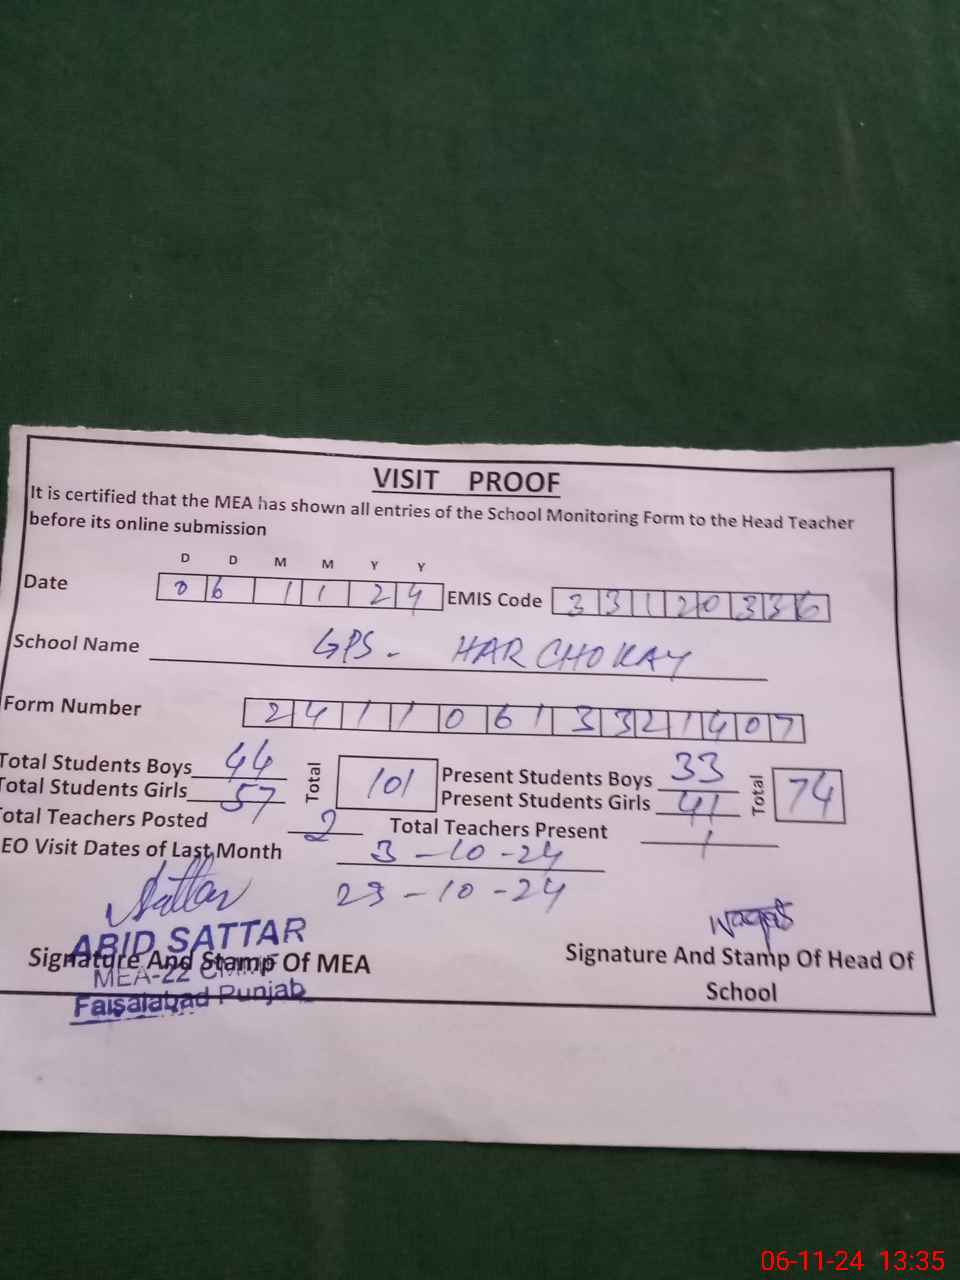 VISIT PROOF
It is certified that the MEA has shown all entries of the School Monitoring Form to the Head Teacher
before its online submission
D D M M Y Y
Date 06 11 24 EMIS Code 33120336
School Name GPS - HAR CHOKAY
Form Number 241106133 21407
Total Students Boys 44 Total 101 Present Students Boys 33 Total 74
Total Students Girls 57 Present Students Girls 41
otal Teachers Posted 2 Total Teachers Present 1
EO Visit Dates of Last Month 3-10-24
23-10-24
Sattar
Waqas
ABID SATTAR
Signature And Stamp Of MEA Signature And Stamp Of Head Of
School
MEA-22
Faisalabad Punjab
06-11-24 13:35